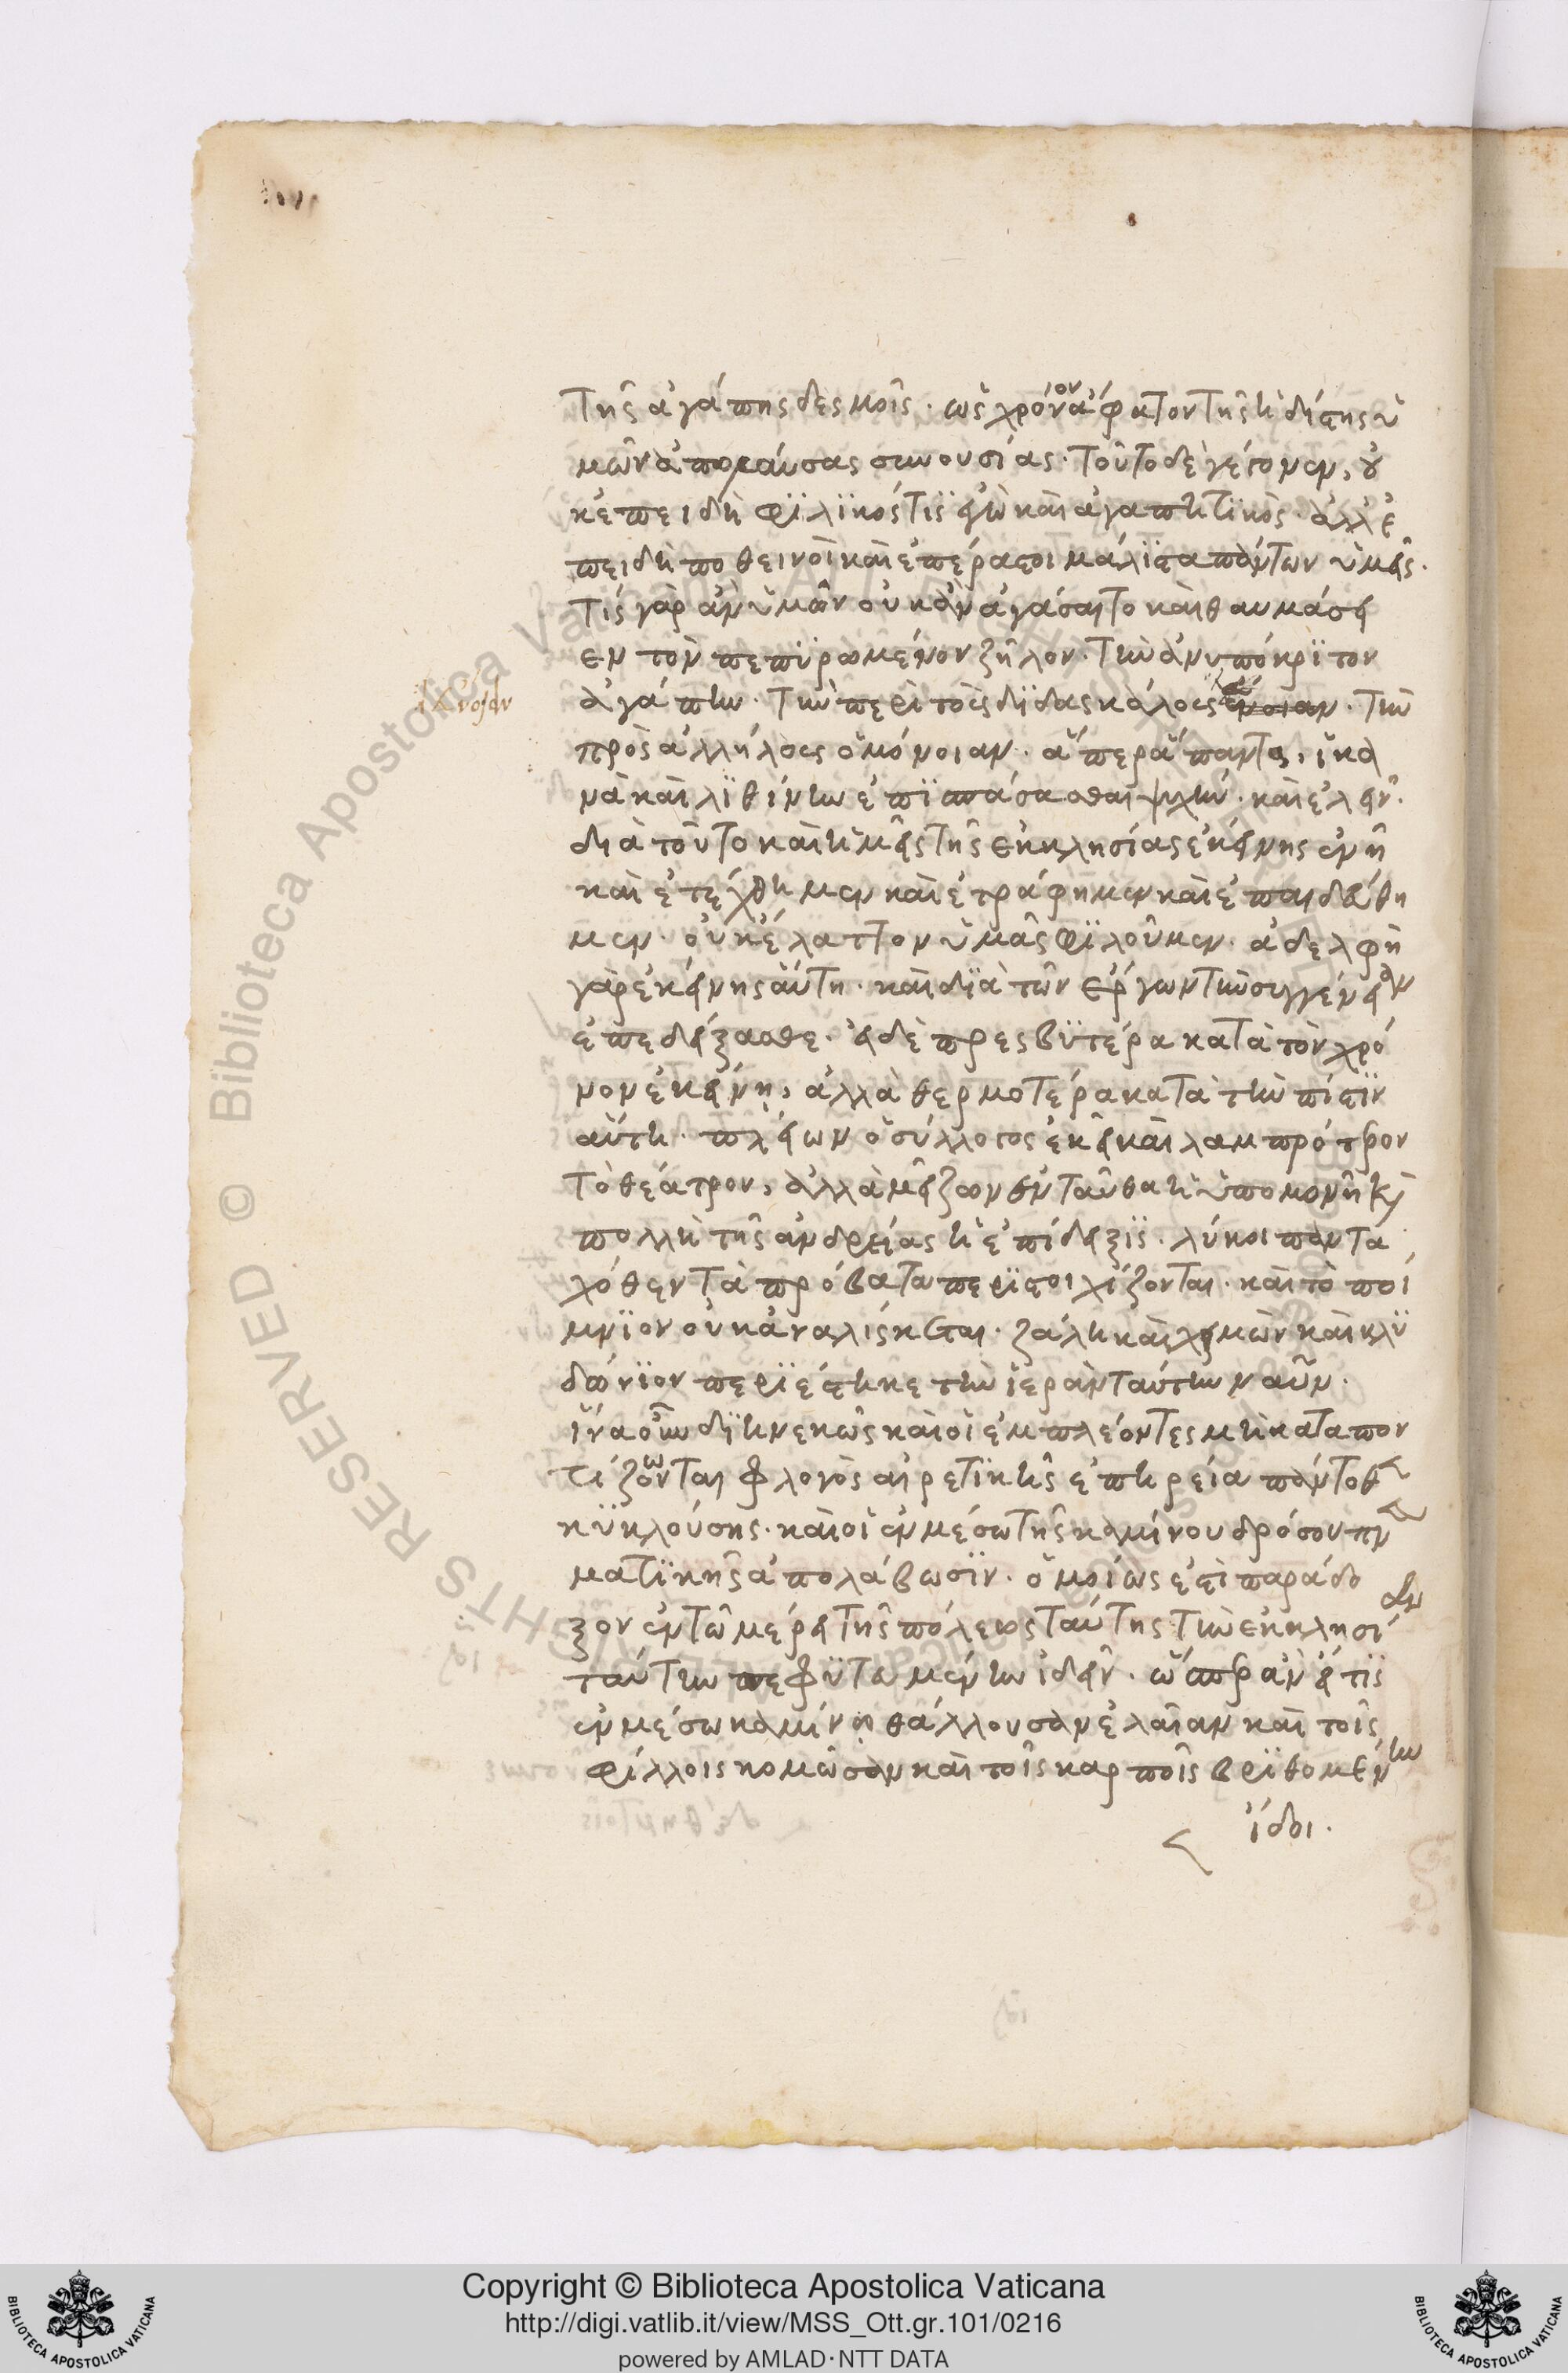 τῆς ἀγάπης δεσμοῖς· ὡς χρόνον ἄφατον τῆς ἡδίστης ὑ
μῶν ἀπολαύσας συνουσίας. τοῦτο δὲ γέγονεν, οὐ
κ ἐπειδὴ φϊλϊκός τϊς ἐγὼ καὶ ἀγαπητϊκὸς· ἀλλ' ἐ
πειδὴ ποθεινοὶ καὶ ἐπέραστοι μάλϊστα πάντων ὑμεῖς.
τίς γὰρ ἂν ὑμῶν οὐκ ἂν ἀγάσαιτο καὶ θαυμάσει
εν τὸν πεπϋρωμένον ζῆλον· τὴν ἀνυπόκρϊτον
ἀγάπην· τὴν περὶ τοὺς διδασκάλους εὔνοιαν· τὴν
πρὸς ἀλλήλους ὁμόνοιαν· ἅπερ ἅπαντα, ἱκα
νὰ καὶ λϊθίνην ἐπϊσπάσασθαι ψυχὴν· καὶ ἑλεῖν.
διὰ τοῦτο καὶ ἡμεῖς τῆς ἐκκλησίας ἐκείνης ἐν ᾗ
καὶ ἐτέχθημεν καὶ ἐτράφημεν καὶ ἐπαιδεύθη
μεν· οὐκ ἔλαττον ὑμᾶς φϊλοῦμεν· ἀδελφὴ
γὰρ ἐκείνης αὕτη· καὶ διὰ τῶν ἔργων τὴν συγγένειαν
ἐπεδείξασθε· εἰ δὲ πρεσβϋτέρα κατὰ τὸν χρό
νον ἐκείνη, ἀλλὰ θερμοτέρα κατὰ τὴν πίστϊν
αὕτη· πλείων ὁ σύλλογος ἐκεῖ καὶ λαμπρότερον
τὸ θέατρον, ἀλλὰ μείζων ἐνταῦθα ἡ ὑπομονὴ καὶ
πολλὴ τῆς ἀνδρείας ἡ ἐπίδειξϊς· λύκοι πάντα
χόθεν τὰ πρόβατα περϊστοιχίζονται· καὶ τὸ ποί
μνϊον οὐκ ἀναλίσκεται· ζάλη καὶ χειμὼν καὶ κλϋ
δώνϊον περϊέστηκε τὴν ἱερὰν ταύτην ναῦν.
ἵνα οὕτω δϊηνεκῶς καὶ οἱ ἐμπλέοντες μὴ καταπον
τίζωνται φλογὸς αἱρετϊκῆς ἐπηρεία πάντοθεν
κϋκλούσης· καὶ οἱ ἐν μέσω τῆς καμίνου δρόσου πνευ
ματϊκῆς ἀπολάβωσϊν· ὁμοίως ἐστὶ παράδο
ξον ἐν τῶ μέρει τῆς πόλεως ταύτης τὴν ἐκκλησίαν
ταύτην πεφϋτευμένην ἰδεῖν· ὥσπερ ἂν εἴ τϊς
ἐν μέσω καμίνῳ θάλλουσαν ἐλαίαν καὶ τοῖς
φύλλοις κομῶσαν καὶ τοῖς καρποῖς βρϊθομένην
ἴδοι.
Copyright © Biblioteca Apostolica Vaticana
http://digi.vatlib.it/view/MSS_Ott.gr.101/0216
powered by AMLAD·NTT DATA